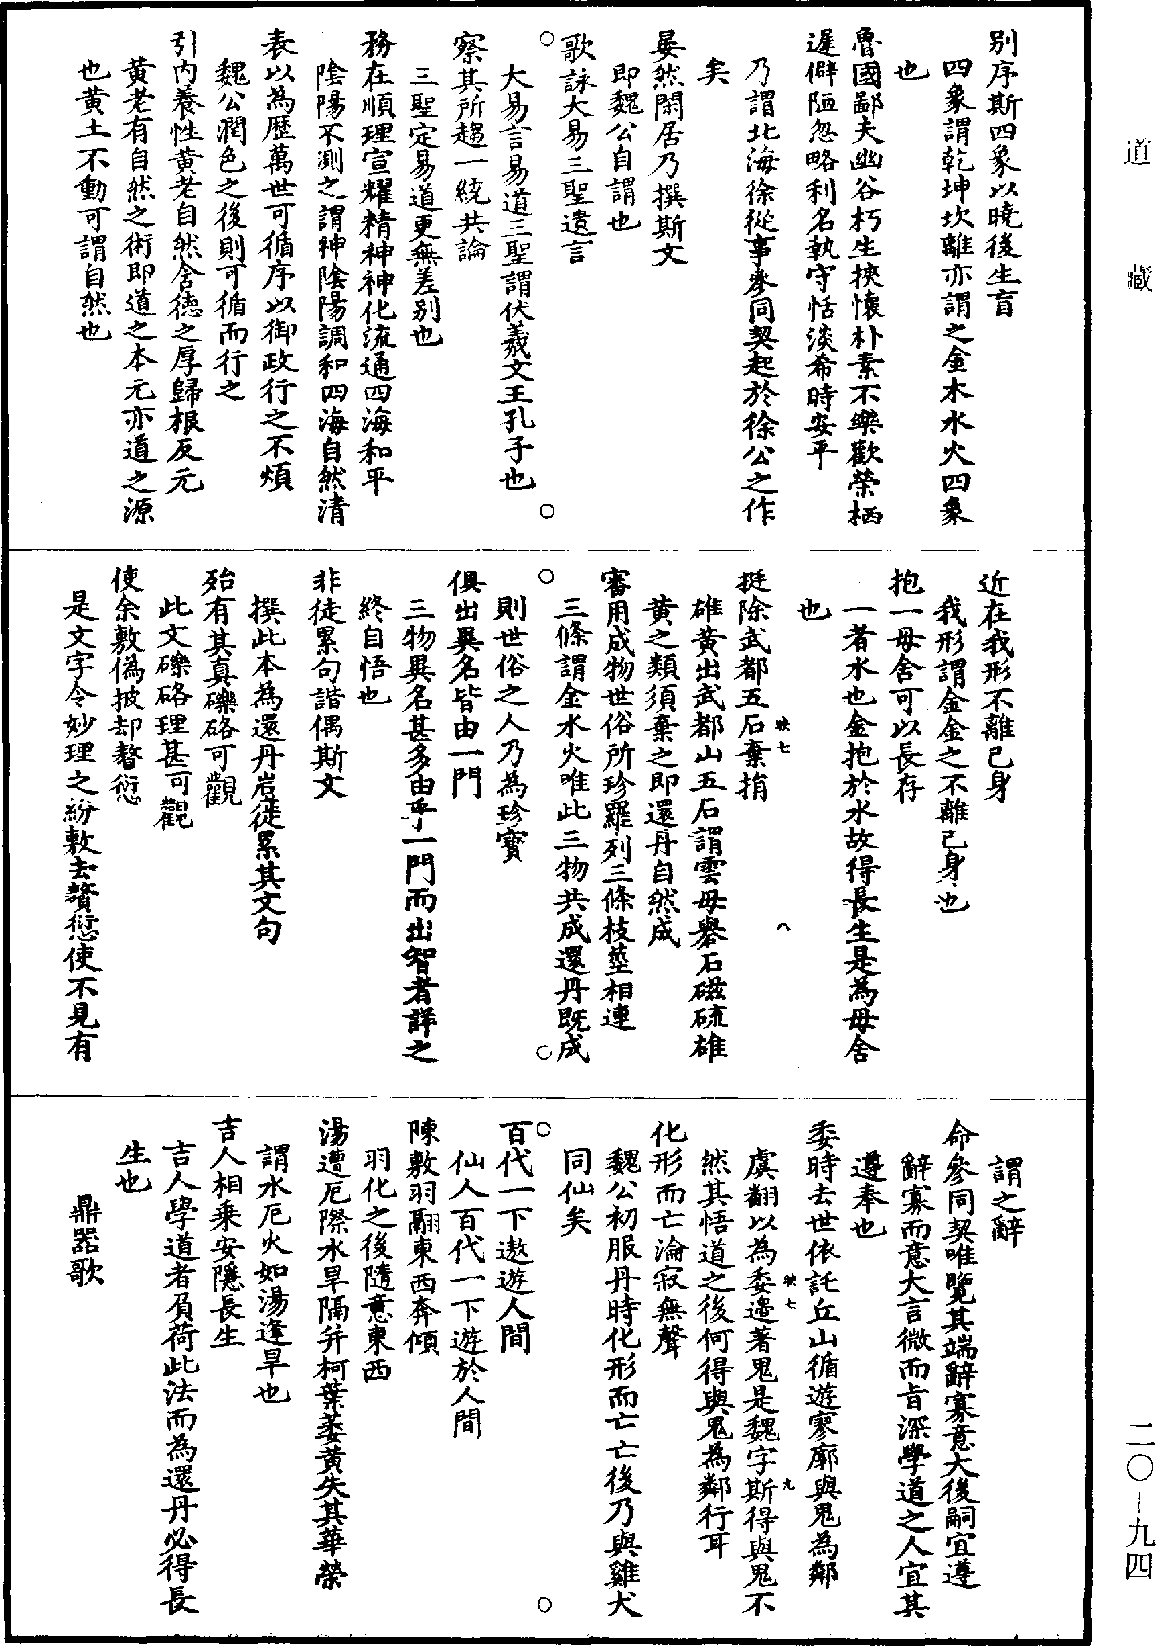 道藏
二〇－九四
別序斯四象以曉後生盲
四象謂乾坤坎離亦謂之金木水火四象
也
魯國鄙夫幽谷朽生挾懷朴素不樂歡榮栖
遲僻陋忽略利名執守恬淡希時安平
乃謂北海徐從事叅同契起於徐公之作
矣
晏然閑居乃撰斯文
即魏公自謂也
歌詠大易三聖遺言
大易言易道三聖謂伏羲文王孔子也
察其所趨一統共論
三聖定易道更無差別也
務在順理宣耀精神神化流通四海和平
陰陽不測之謂神陰陽調和四海自然清
表以為歷萬世可循序以御政行之不煩
魏公潤色之後則可循而行之
引內養性黃老自然含德之厚歸根反元
黃老有自然之術即道之本元亦道之源
也黃土不動可謂自然也
近在我形不離己身
我形謂金金之不離己身也
抱一毋舍可以長存
一者水也金抱於水故得長生是為毋舍
也
挺除武都五石棄捐
映七
八
雄黃出武都山五石謂雲母礜石磁硫雄
黃之類須棄之即還丹自然成
審用成物世俗所珍羅列三條枝莖相連
三條謂金水火唯此三物共成還丹既成
則世俗之人乃為珍寶
俱出異名皆由一門
三物異名甚多由乎一門而出智者詳之
終自悟也
非徒累句諧偶斯文
撰此本為還丹豈徒累其文句
殆有其真礫硌可觀
此文礫硌理甚可觀
使余敷偽披却贅愆
是文字令妙理之紛敷去贅愆使不見有
謂之辭
命參同契唯覽其端辭寡意大後嗣宜遵
辭寡而意大言微而旨深學道之人宜其
遵奉也
委時去世依託丘山循遊寥廓與鬼為鄰
映七
九
虞翻以為委邊著鬼是魏字斯得與鬼不
然其悟道之後何得與鬼為鄰行耳
化形而亡淪寂無聲
魏公初服丹時化形而亡亡後乃與雞犬
同仙矣
百代一下遨遊人間
仙人百代一下遊於人間
陳敷羽翮東西奔傾
羽化之後隨意東西
湯遭厄際水旱隔并柯葉萎黃失其華榮
謂水厄火如湯逢旱也
吉人相乘安隱長生
吉人學道者負荷此法而為還丹必得長
生也
鼎器歌